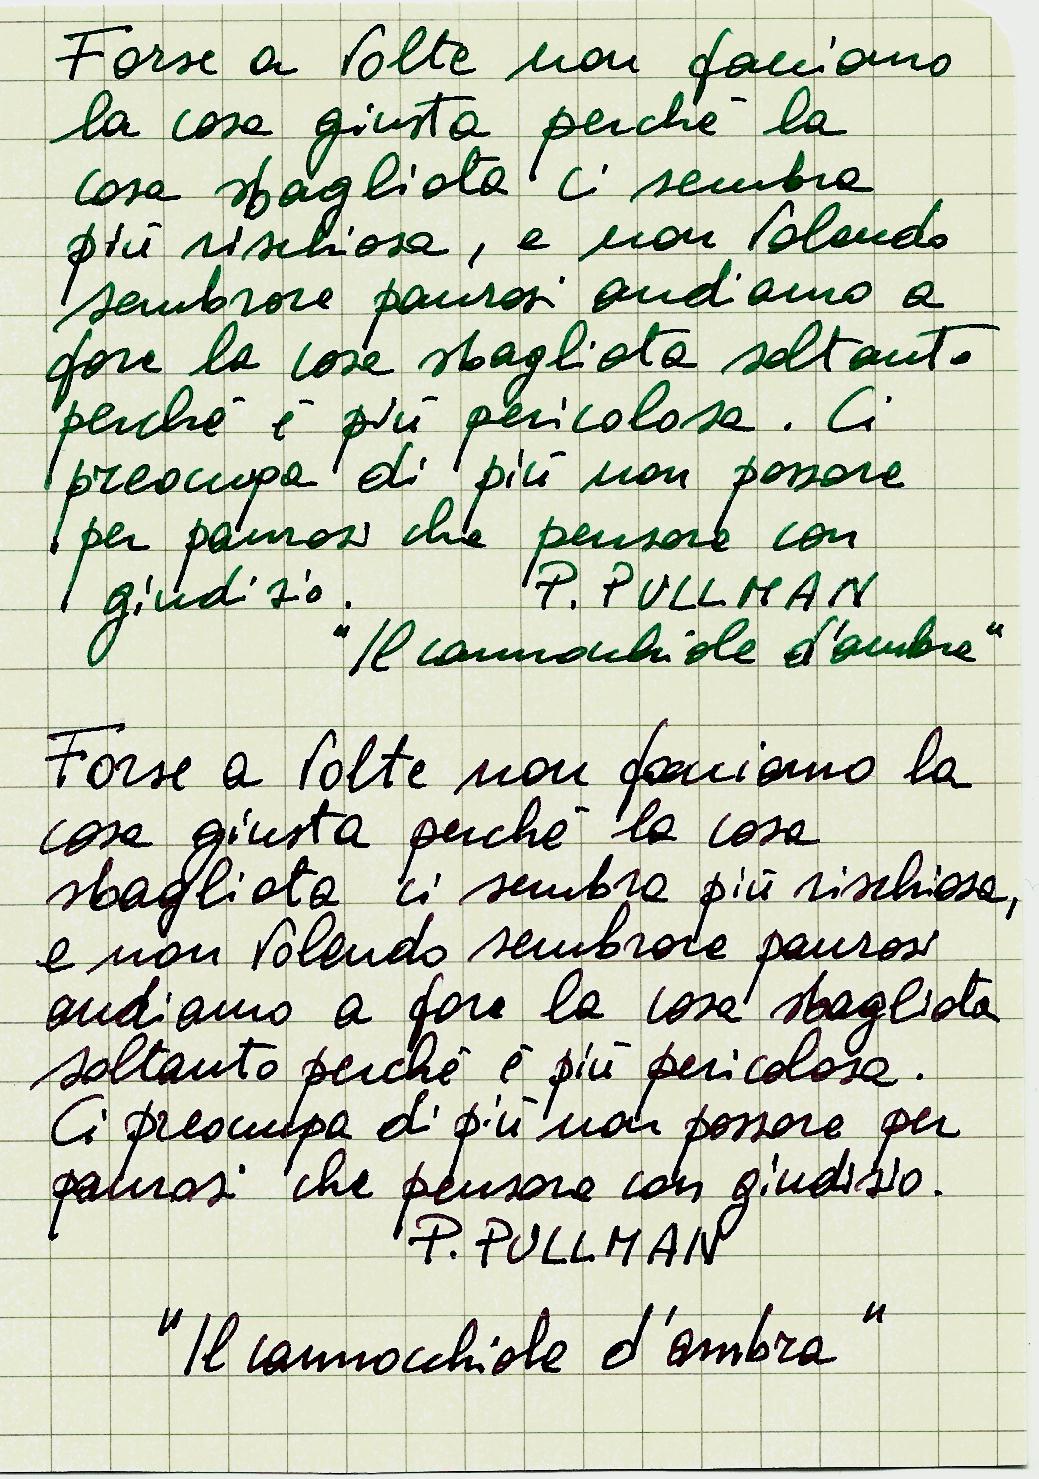 Forse a volte non facciamo
la cosa giusta perché la
cosa sbagliata ci sembra
più rischiosa, e non volendo
sembrare paurosi andiamo a
fare la cosa sbagliata soltanto
perché è più pericolosa. Ci
preoccupa di più non passare
per paurosi che pensare con
giudizio. P. PULLMAN
"Il cannocchiale d'ambra"
Forse a volte non facciamo la
cosa giusta perché la cosa
sbagliata ci sembra più rischiosa,
e non volendo sembrare paurosi
andiamo a fare la cosa sbagliata
soltanto perché è più pericolosa.
Ci preoccupa di più non passare per
paurosi che pensare con giudizio.
P. PULLMAN
"Il cannocchiale d'ambra"